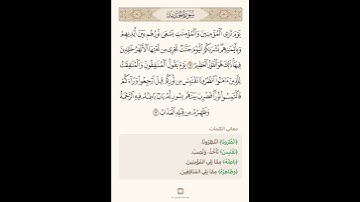 سُورَةُ الحَدِيدِ
يَوْمَ تَرَى الْمُؤْمِنِينَ وَالْمُؤْمِنَٰتِ يَسْعَىٰ نُورُهُم بَيْنَ أَيْدِيهِمْ
وَبِأَيْمَٰنِهِم بُشْرَىٰكُمُ الْيَوْمَ جَنَّٰتٌ تَجْرِي مِن تَحْتِهَا الْأَنْهَٰرُ خَٰلِدِينَ
فِيهَا ذَٰلِكَ هُوَ الْفَوْزُ الْعَظِيمُ ١٢ يَوْمَ يَقُولُ الْمُنَٰفِقُونَ وَالْمُنَٰفِقَٰتُ
لِلَّذِينَ ءَامَنُوا انظُرُونَا نَقْتَبِسْ مِن نُّورِكُمْ قِيلَ ارْجِعُوا وَرَاءَكُمْ
فَالْتَمِسُوا نُورًا فَضُرِبَ بَيْنَهُم بِسُورٍ لَّهُ بَابٌ بَاطِنُهُ فِيهِ الرَّحْمَةُ
وَظَٰهِرُهُ مِن قِبَلِهِ الْعَذَابُ ١٣
معاني الكلمات
﴿انظُرُونَا﴾ انْتَظِرُونَا.
﴿نَقْتَبِسْ﴾ نَأْخُذْ، وَنُصِبْ.
﴿بَاطِنُهُ﴾ مِمَّا يَلِي المُؤْمِنِينَ.
﴿وَظَاهِرُهُ﴾ مِمَّا يَلِي المُنَافِقِينَ.